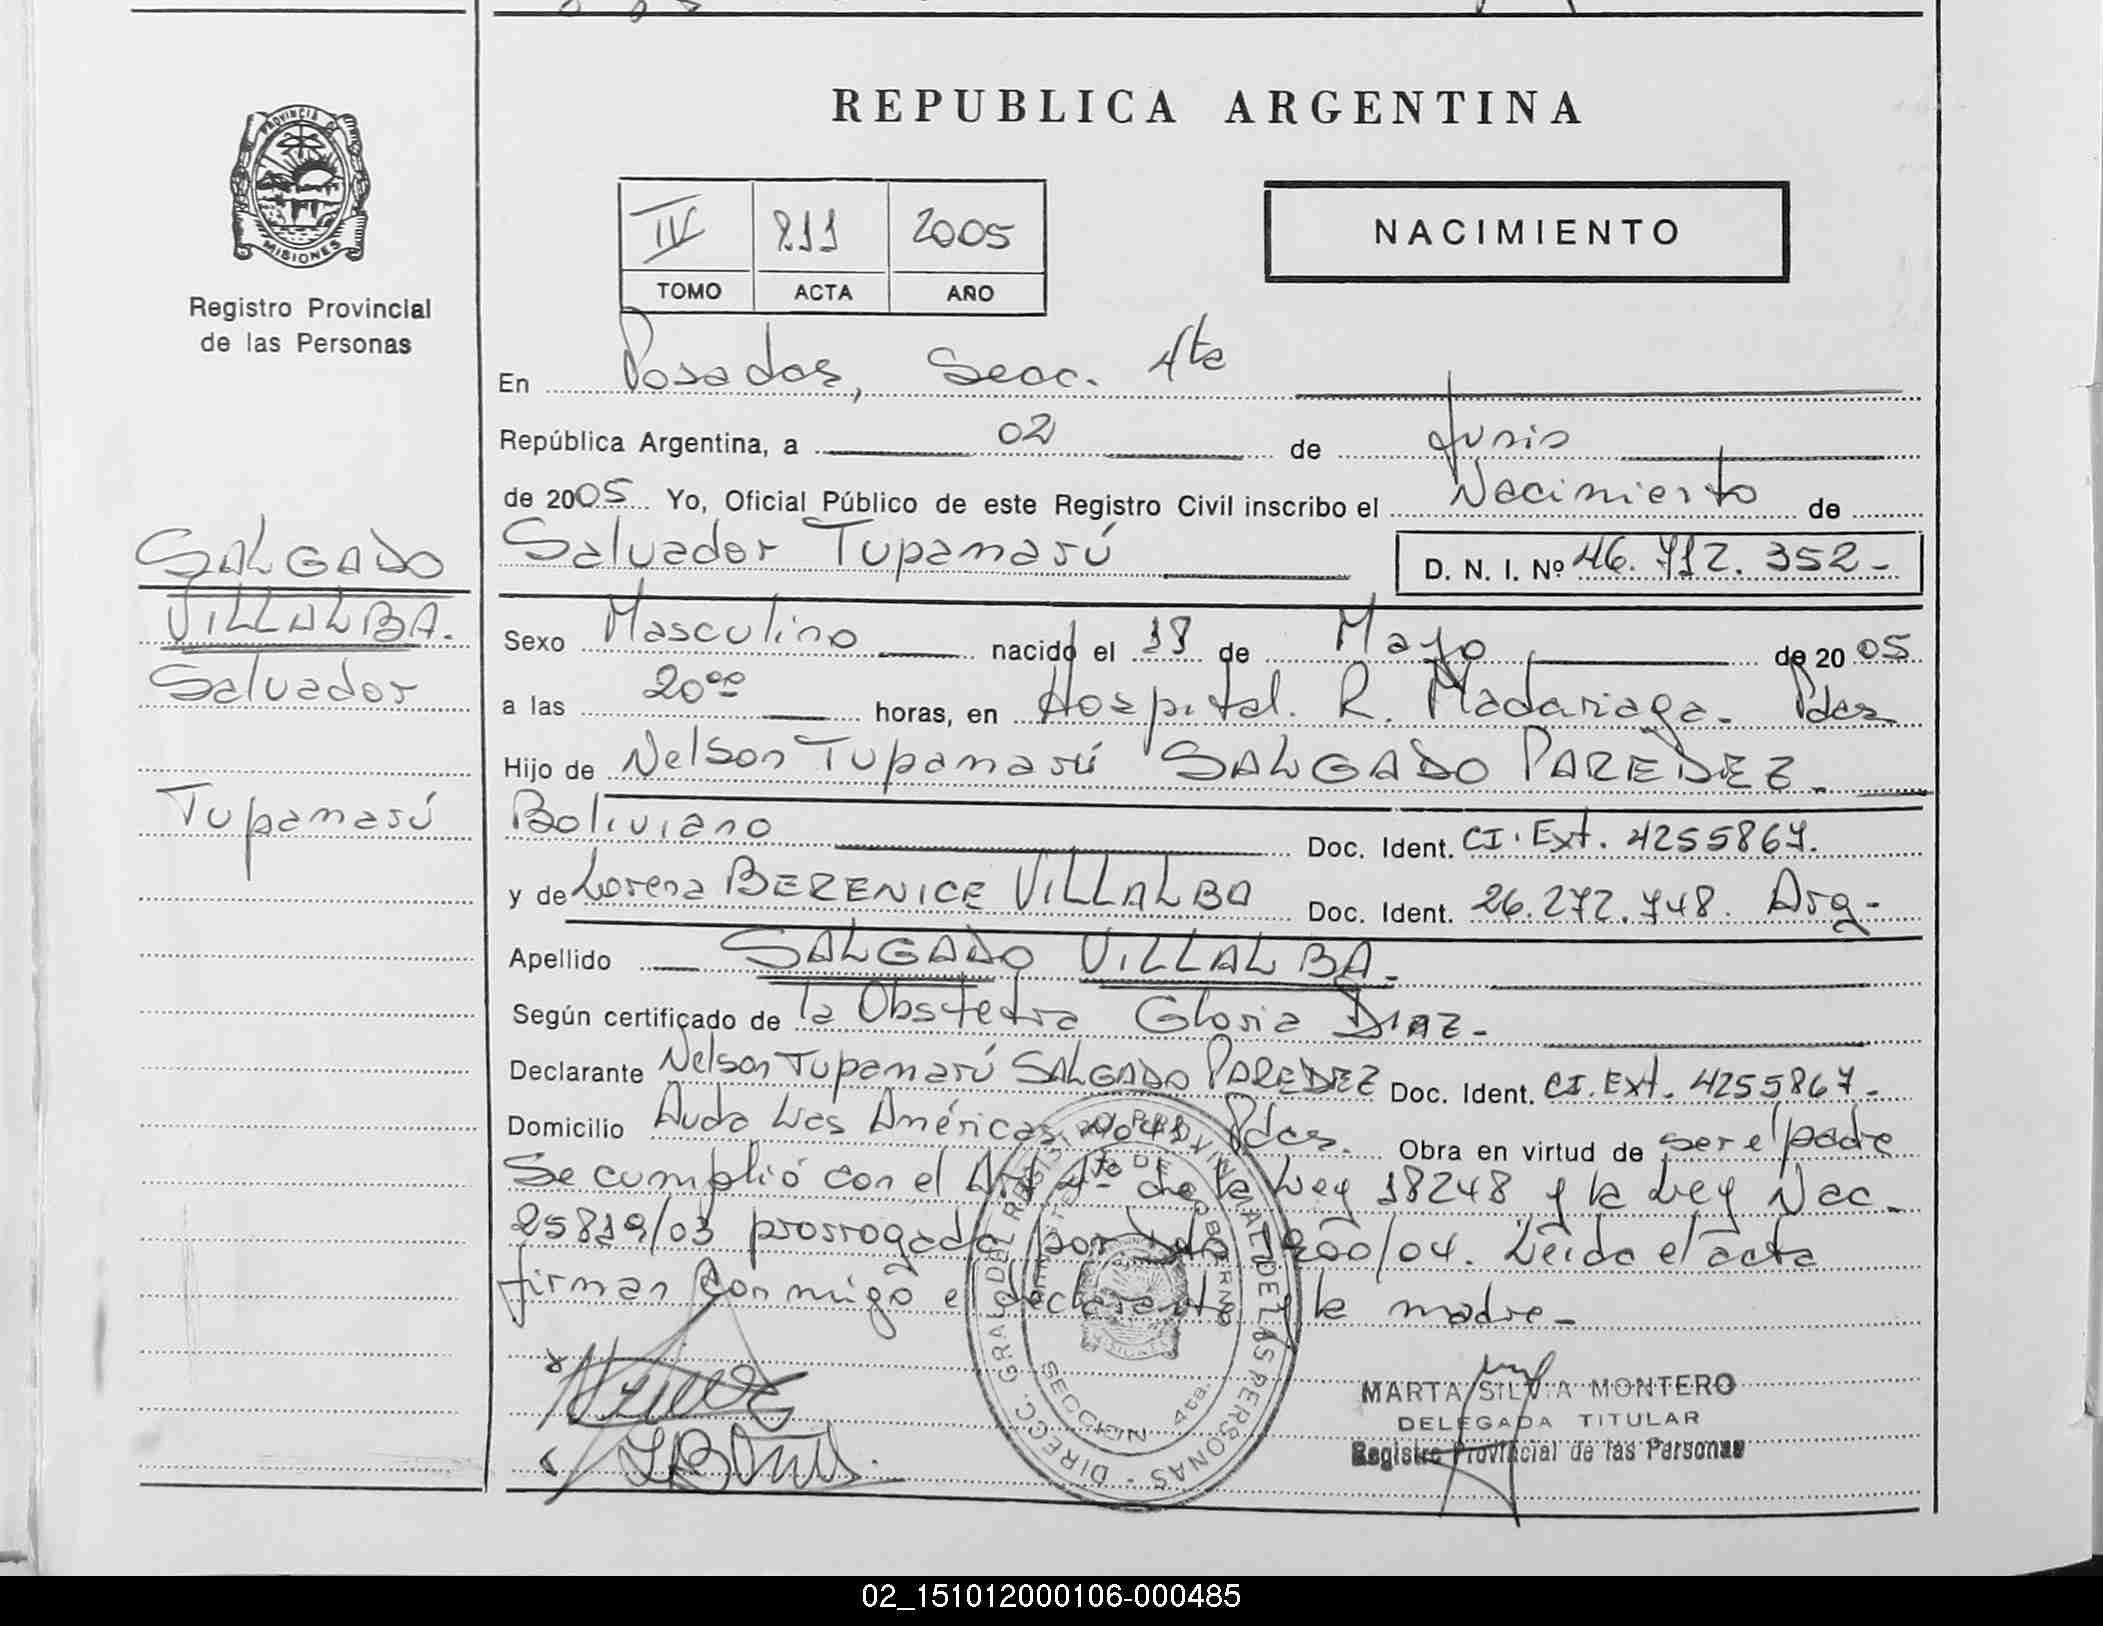 PROVINCIA DE
MISIONES
Registro Provincial
de las Personas
SALGADO
VILLALBA.
Salvador
Tupamarú
REPUBLICA ARGENTINA
IV 211 2005
TOMO ACTA AÑO
NACIMIENTO
En Posadas, Secc. 4ta
República Argentina, a 02 de Junio
de 2005 Yo, Oficial Público de este Registro Civil inscribo el Nacimiento de
Salvador Tupamarú D. N. I. Nº 46.712.352-
Sexo Masculino nacido el 18 de Mayo de 2005
a las 20°° horas, en Hospital. R. Madariaga. Pdas
Hijo de Nelson Tupamarú SALGADO PAREDEZ
Boliviano Doc. Ident. CI. Ext. 4255867.
y de Lorena BERENICE VILLALBA Doc. Ident. 26.272.748. Arg-
Apellido SALGADO VILLALBA.
Según certificado de la Obstetra Gloria DIAZ-
Declarante Nelson Tupamarú SALGADO PAREDEZ Doc. Ident. CI. Ext. 4255867-
Domicilio Avda Las Américas Pdas. Obra en virtud de ser el padre
Se cumplió con el Art 4to de la Ley 18248 y la Ley Nac.
25819/03 prorrogada por 1200/04. Leída el acta
firman conmigo el declarante y la madre-
DIRECC. GRAL DEL REGISTRO PROVINCIAL DE LAS PERSONAS
MINISTERIO DE GOBIERNO
SECCION 4ta.
MARTA SILVIA MONTERO
DELEGADA TITULAR
Registro Provincial de las Personas
02_151012000106-000485